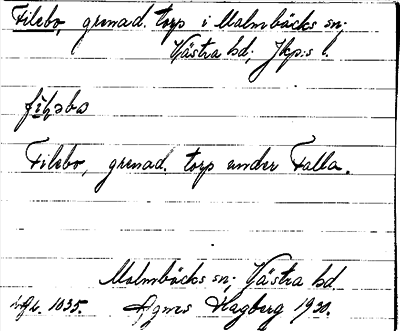 Filebo, grenad. torp i Malmbäcks sn;
Västra hd; Jkp:s l.
Filebo, grenad. torp under Falla.
Malmbäcks sn; Västra hd.
1035. Agnes Hagberg 1930.